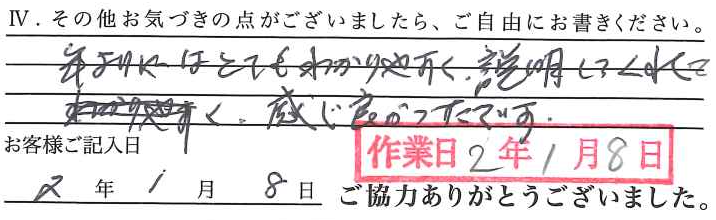 Ⅳ．その他お気づきの点がございましたら、ご自由にお書きください。
年よりにはとてもわかりやすく、説明してくれて
わかりやすく、感じ良かったです。
お客様ご記入日
作業日 2年1月8日
2年1月8日 ご協力ありがとうございました。